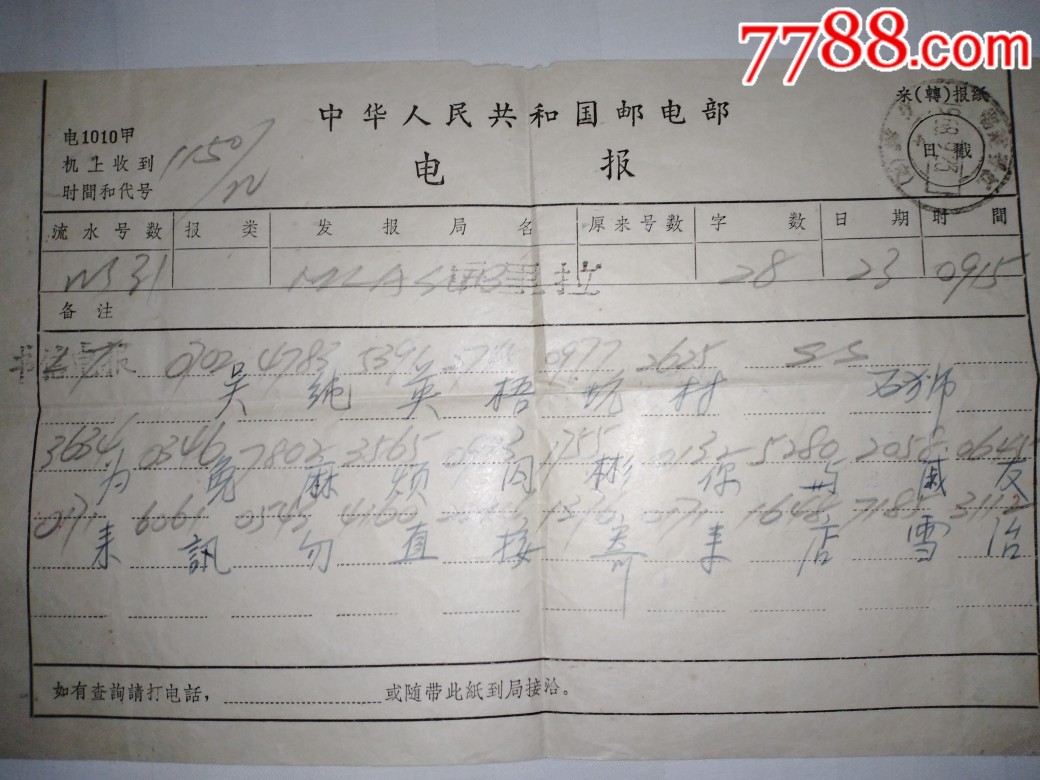 7788.com
来(轉)报紙
中华人民共和国邮电部
电1010甲
机上收到
时間和代号
1150/
电 报
日戳
流水号数 报类 发报局名 原来号数 字数 日期 时間
31 MLA 28 23 0915
备注
0702 4783 5391 0977 2625 SS
吴纯英梧坑村 石狮
3634 0346 7802 3565 1755 0132 5280 2058 0645
为免麻烦 同彬你与戚友
0171 6061 0543 4160 0171 1648 7185 3112
来訊勿直接寄来店雪治
如有查詢請打电話， 或随带此紙到局接洽。